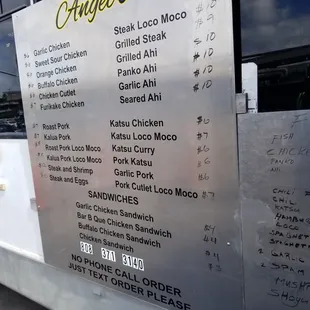 Angel's
Steak Loco Moco $10
Garlic Chicken Grilled Steak $9
Sweet Sour Chicken Grilled Ahi $10
Orange Chicken Panko Ahi $10
Buffalo Chicken Garlic Ahi $10
Chicken Cutlet Seared Ahi $10
Furikake Chicken
Katsu Chicken $6
Roast Pork Katsu Loco Moco $7
Kalua Pork Katsu Curry $6
Roast Pork Loco Moco Pork Katsu
Kalua Pork Loco Moco Garlic Pork $6
Steak and Shrimp Pork Cutlet Loco Moco $7
Steak and Eggs
SANDWICHES
Garlic Chicken Sandwich
Bar B Que Chicken Sandwich
Buffalo Chicken Sandwich
Chicken Sandwich
808 371 3140
NO PHONE CALL ORDER
JUST TEXT ORDER PLEASE
FISH
CHICK
PANKO
AHI
CHILI
CHIL
KATSU
HAMBU
LOCO
SPAGHE
SPAGHET
2 GARLIC
2 SPAM
MUSH
SHOYU